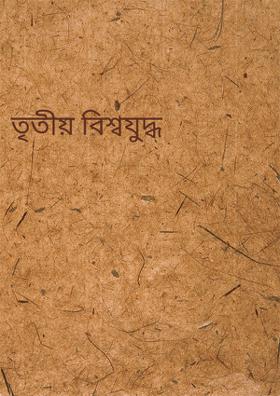 তৃতীয় বিশ্বযুদ্ধ